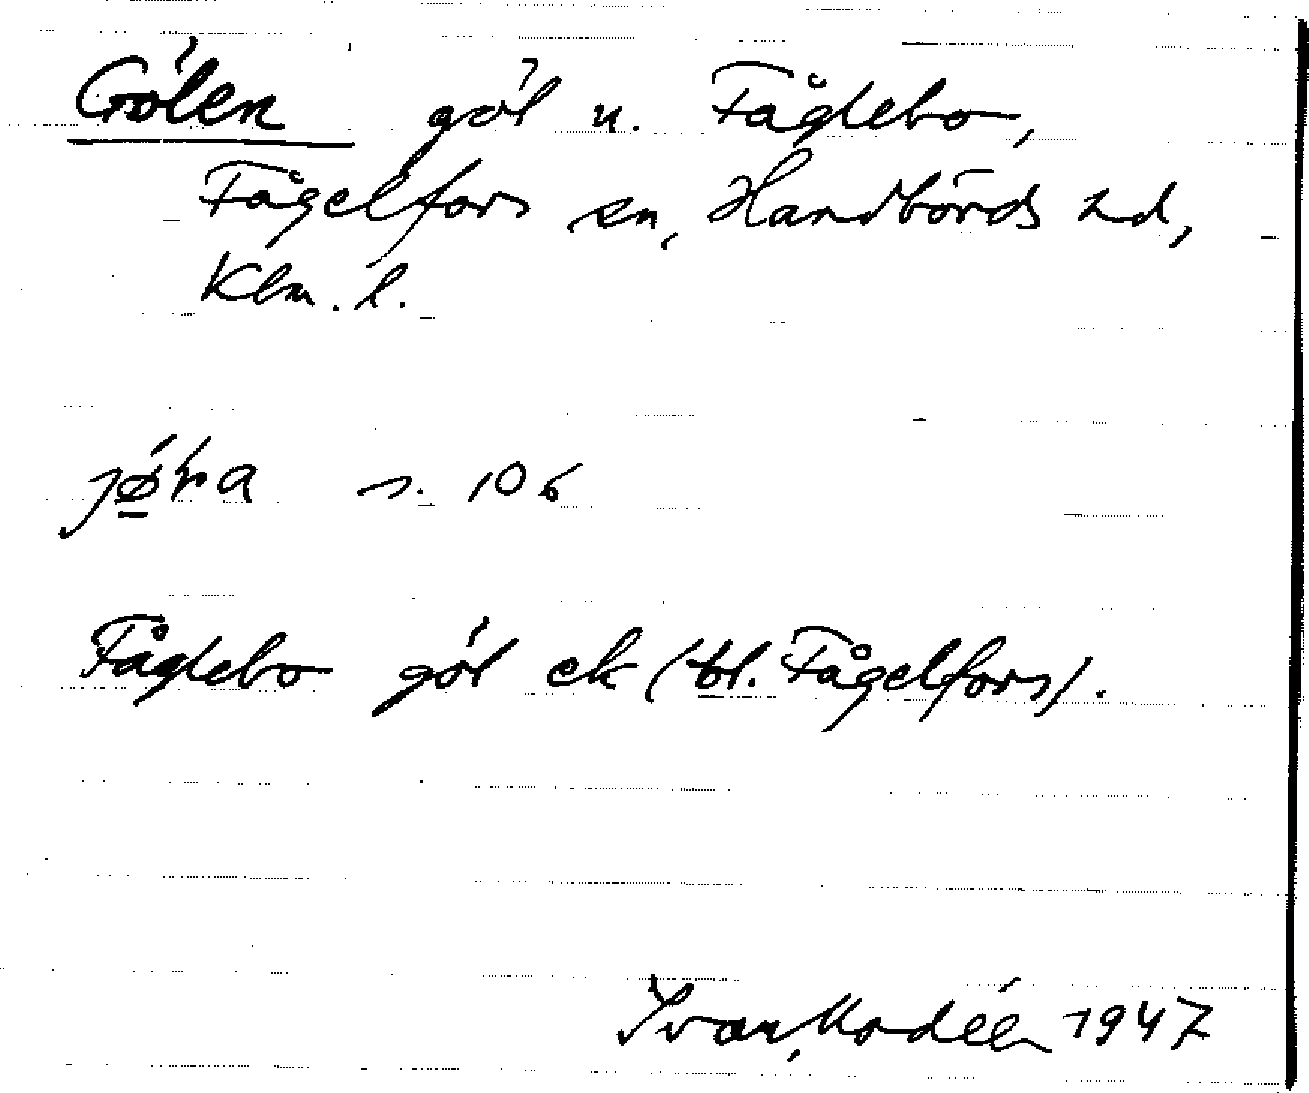 Gölen göl n. Fåglebo,
Fågelfors sn, Handbörds hd,
Klm. l.
s. 106
Fåglebo göl ek (bl. Fågelfors).
Ivar Modéer 1947